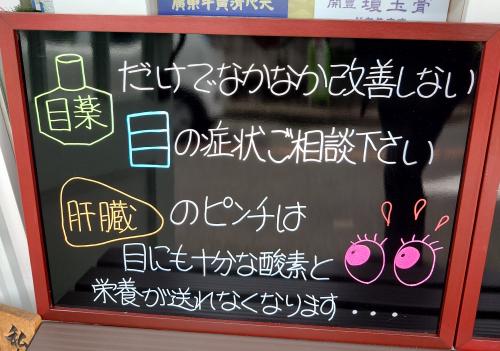 開豊 瓊玉膏
目薬だけでなかなか改善しない
目の症状ご相談下さい
肝臓のピンチは
目にも十分な酸素と
栄養が送れなくなります...